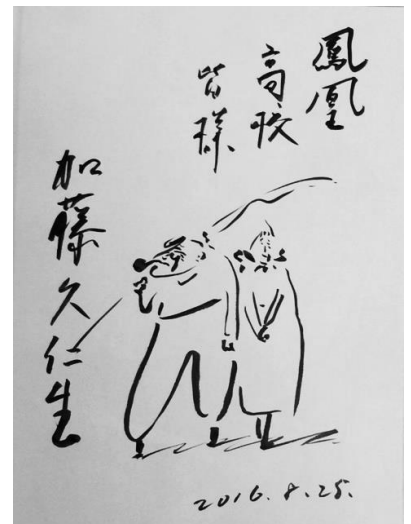 鳳凰
高校
皆様
加藤久仁生
2016.8.25.